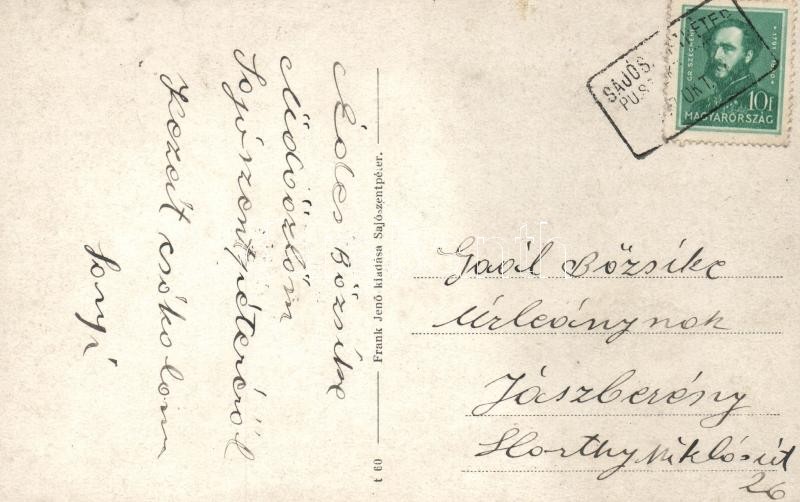 Édes Bőzsike
Üdvözlöm
Sajószentpéterről
Kezeit csókolom
Sanyi
Frank Jenő kiadása Sajószentpéter.
t 60
SAJÓS
PU
OKT.
GR. SZÉCHENYI
10f
MAGYARORSZÁG
Gaál Bőzsike
Úrleánynak
Jászberény
Horthy Miklós út
26